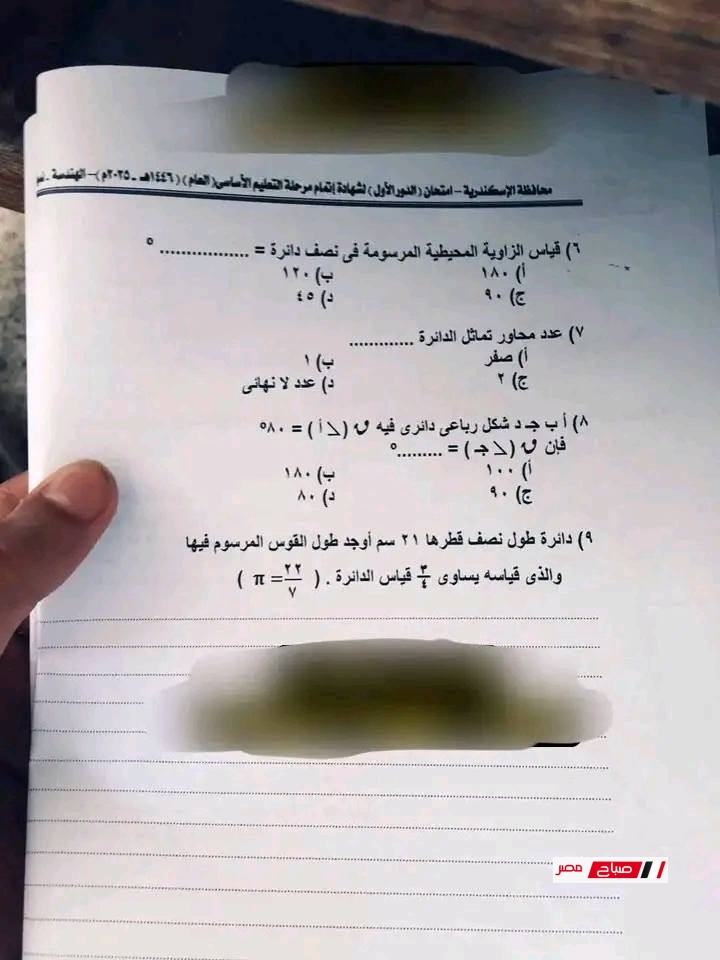 محافظة الإسكندرية - امتحان (الدور الأول) لشهادة إتمام مرحلة التعليم الأساسى (العام) (١٤٤٦هـ - ٢٠٢٥م) - الهندسة -
٦) قياس الزاوية المحيطية المرسومة فى نصف دائرة = ................. °
أ) ١٨٠ ب) ١٢٠
ج) ٩٠ د) ٤٥
٧) عدد محاور تماثل الدائرة .............
أ) صفر ب) ١
ج) ٢ د) عدد لا نهائى
٨) أ ب جـ د شكل رباعى دائرى فيه ق (∠ أ) = ٨٠°
فإن ق (∠ جـ) = .........°
أ) ١٠٠ ب) ١٨٠
ج) ٩٠ د) ٨٠
٩) دائرة طول نصف قطرها ٢١ سم أوجد طول القوس المرسوم فيها
والذى قياسه يساوى ٣/٤ قياس الدائرة . ( π = ٢٢/٧ )
صباح مصر